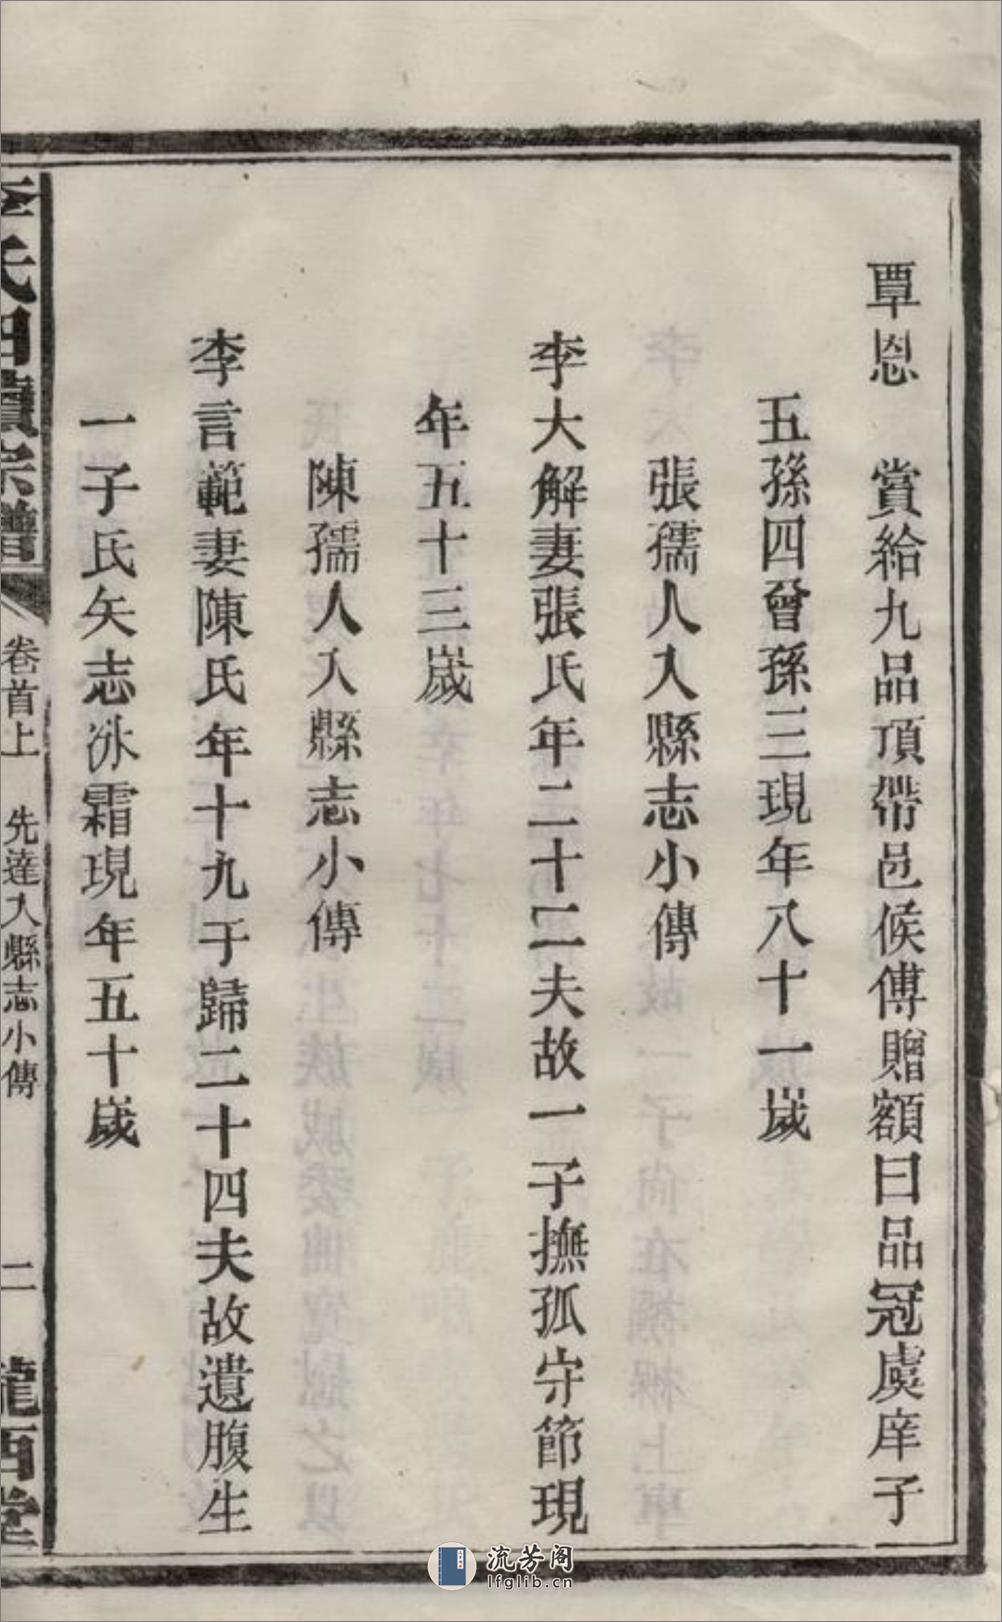 覃恩　賞給九品頂帶邑候傅贈額曰品冠虞庠子
五孫四曾孫三現年八十一嵗
張孺人入縣志小傳
李大解妻張氏年二十二夫故一子撫孤守節現
年五十三嵗
陳孺人入縣志小傳
李言範妻陳氏年十九于歸二十四夫故遺腹生
一子氏矢志氷霜現年五十嵗
李氏四續宗譜
卷首上　先達入縣志小傳
二　隴西堂
流芳阁
lfglib.cn